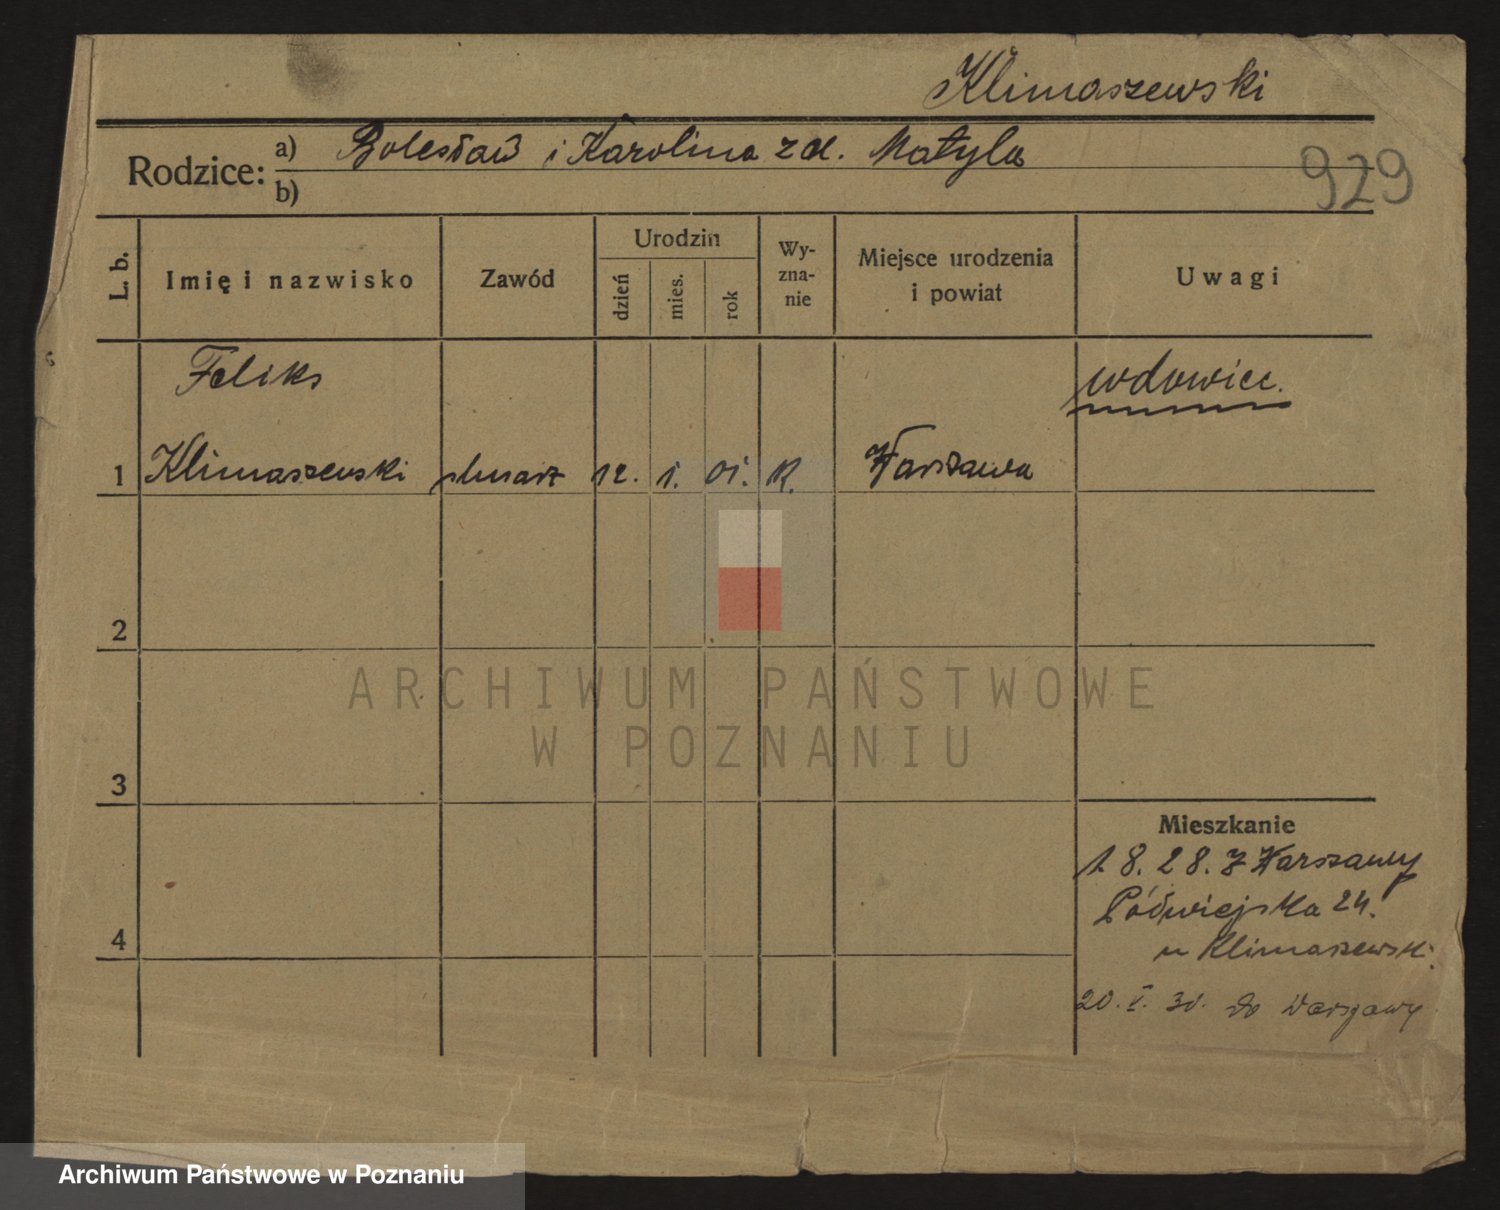 Klimaszewski
Rodzice: a) Bolesław i Karolina z d. Matyla
b)
929
L. b.
Imię i nazwisko
Zawód
Urodzin
dzień
mies.
rok
Wy-
zna-
nie
Miejsce urodzenia
i powiat
Uwagi
Feliks
wdowiec.
1 Klimaszewski slusarz 12. 1. 01. R. Warszawa
2
ARCHIWUM PAŃSTWOWE
W POZNANIU
3
Mieszkanie
1.8.28. z Warszawy
Półwiejska 24.
4
u Klimaszewski.
20. V. 30. do Warszawy
Archiwum Państwowe w Poznaniu